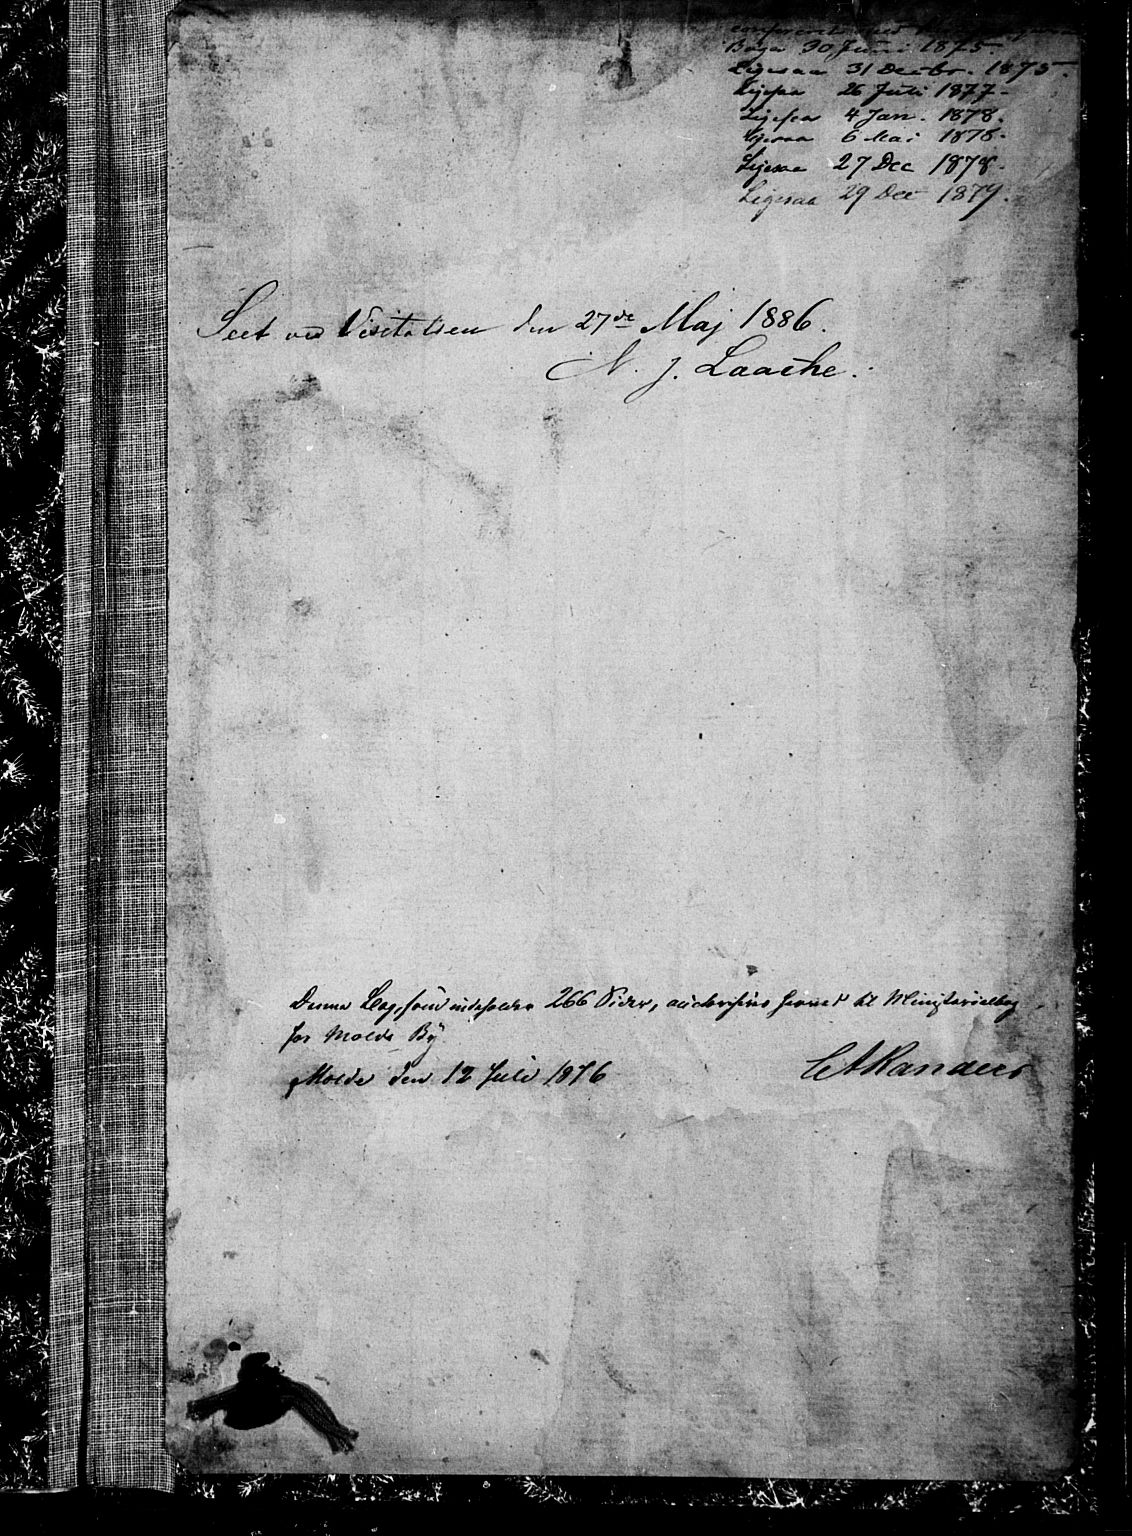 confereret med
Bog 30 Juni 1875
Ligesaa 31 Decbr. 1875.
Ligesaa 26 Juli 1877.
Ligesaa 4 Jan. 1878.
Ligesaa 6 Mai 1878.
Ligesaa 27 Dec 1878.
Ligesaa 29 Dec 1879.
Seet ved Visitatsen den 27de Maj 1886.
N. J. Laache.
Denne Bog, som indeholder 266 Sider, autoriseres herved til Ministerialbog
for Molde By.
Molde den 12 Juli 1876
Randers